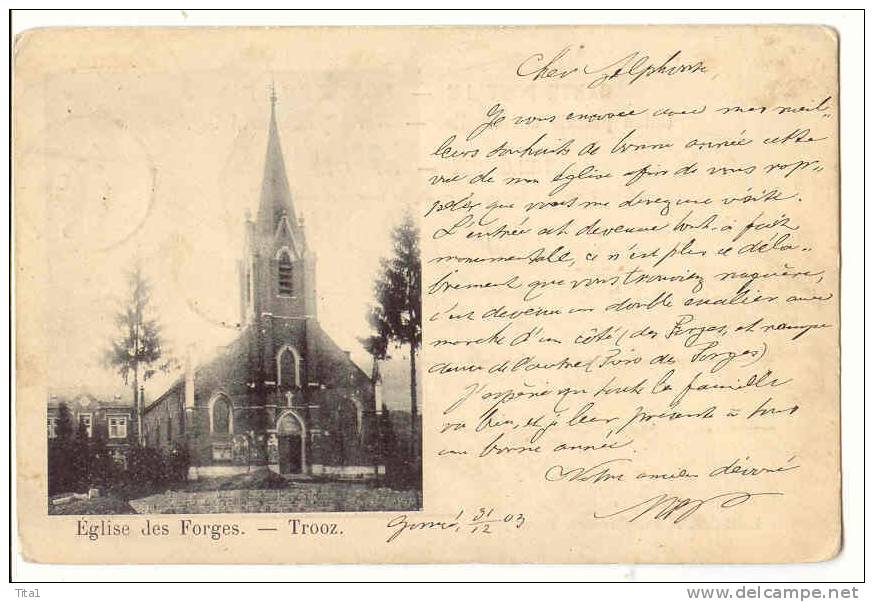 Cher Alphonse,
Je vous envoie avec mes meil-
leurs souhaits de bonne année cette
vue de mon église afin de vous rap-
peler que vous me devez une visite.
L'entrée est devenue tout-à-fait
monumentale, ce n'est plus ce déla-
brement que vous trouviez naguère,
c'est devenu un double escalier avec
marche d'un côté (des Forges, et rampe
douce de l'autre (Bois de Forges)
J'espère que toute la famille
va bien, et je leur présente à tous
une bonne année.
Votre ami dévoué
Église des Forges. — Trooz.
31/12 03
Tital
www.delcampe.net